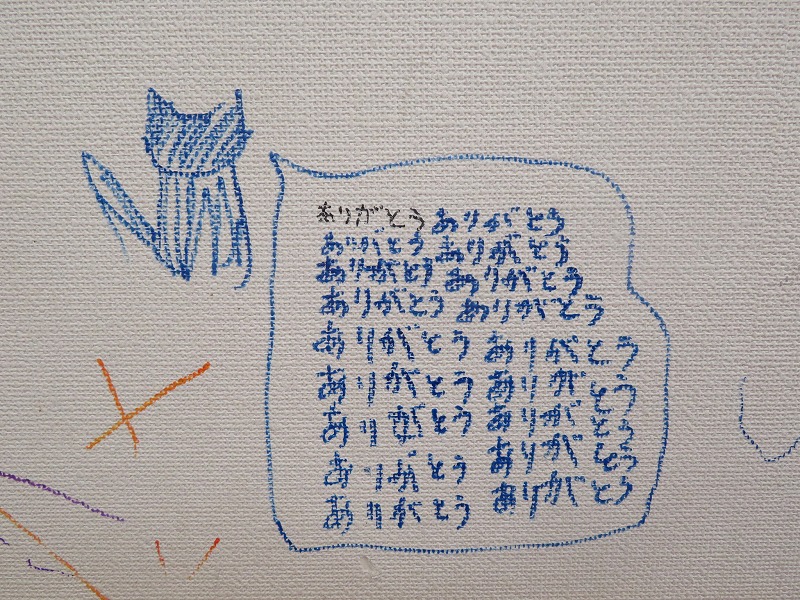 ありがとう ありがとう
ありがとう ありがとう
ありがとう ありがとう
ありがとう ありがとう
ありがとう ありがとう
ありがとう ありがとう
ありがとう ありがとう
ありがとう ありがとう
ありがとう ありがとう